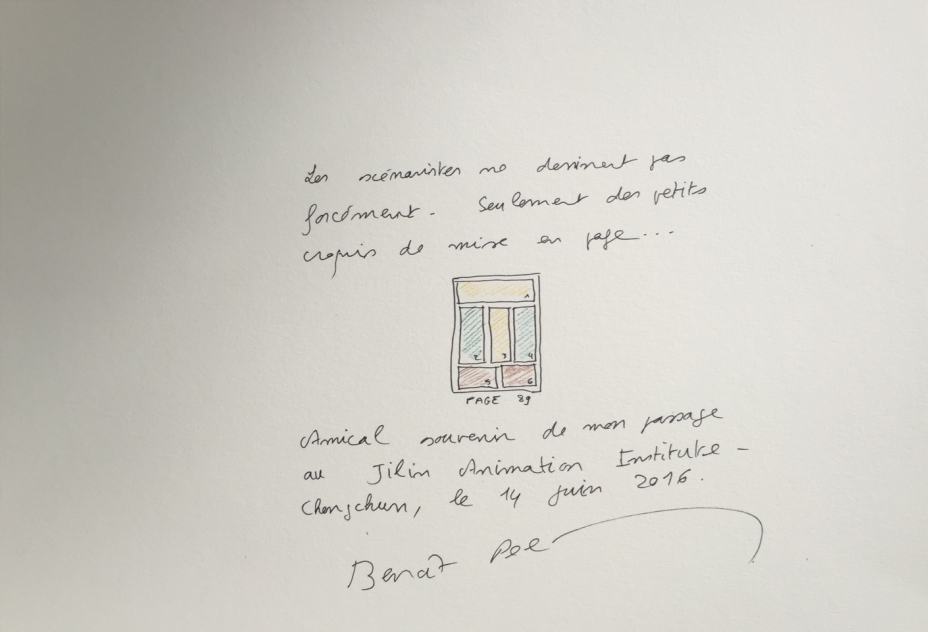 Les scénaristes ne dessinent pas
forcément. Seulement des petits
croquis de mise en page...
1
2 3 4
5 6
PAGE 89
Amical souvenir de mon passage
au Jilin Animation Institute -
Changchun, le 14 juin 2016.
Benoît Pee